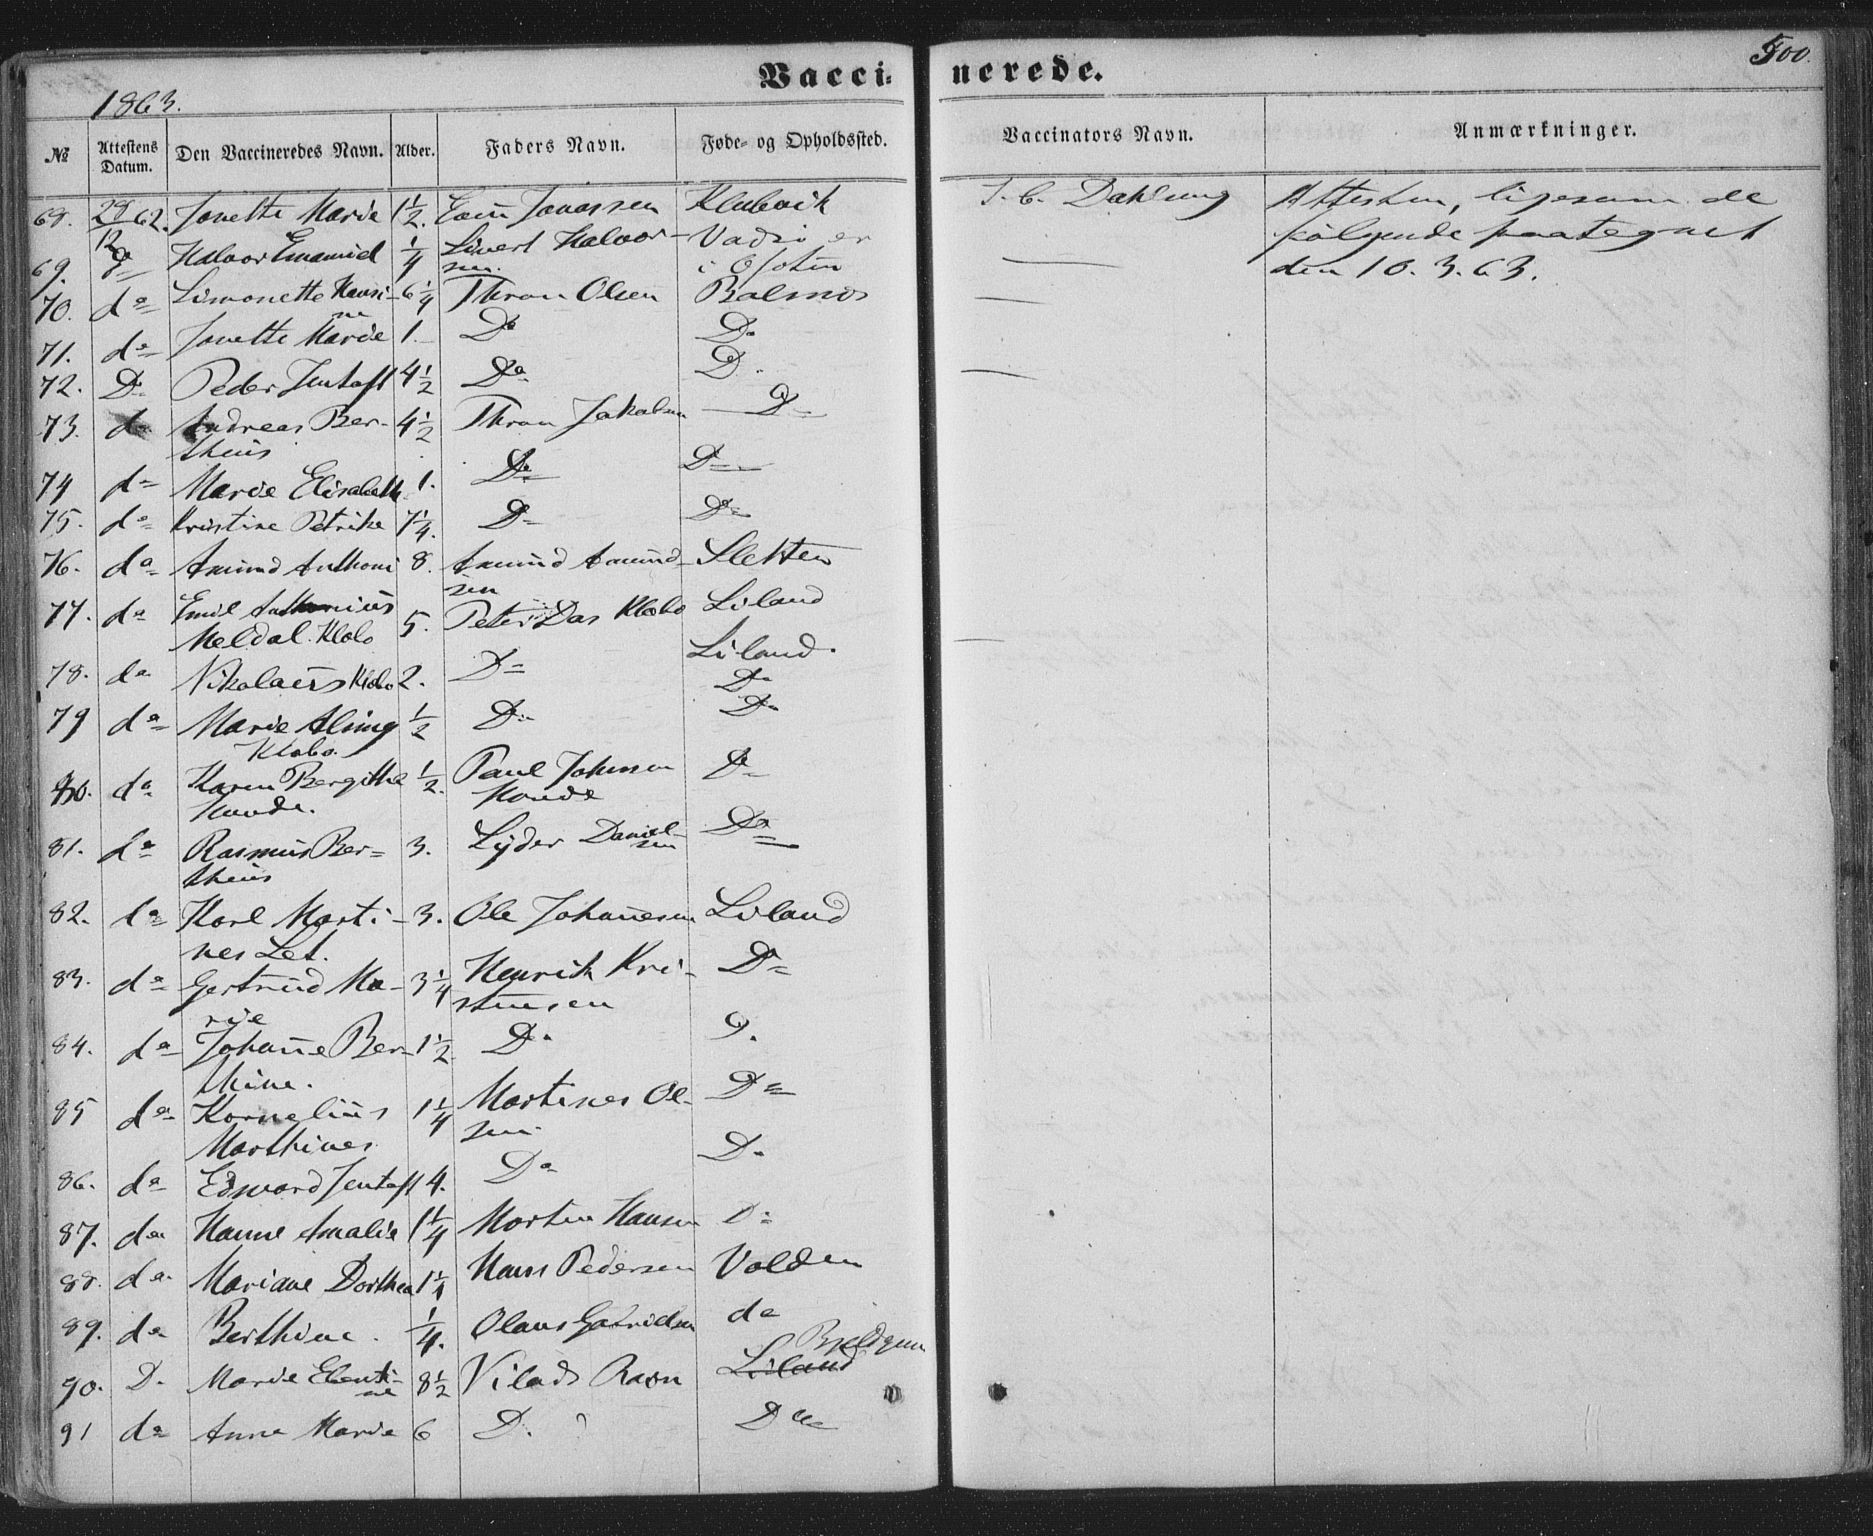 Vaccinerede.
500.
1863.
№ Attestens Datum. Den Vaccineredes Navn. Alder. Faders Navn. Føde- og Opholdssted. Vaccinators Navn. Anmærkninger.
68. 29/12 62. Jonette Marie 1 1/2. Jonassen Klubvik Attesten, ligesom de
69. Do Halvor Emanuel 1/4 Sivert Halvor- følgende paategnet
sen. i den 10.3.63.
70. do Simonette Hansi- 6 1/4 Thron Olsen Balsnes
ne
71. do Jonette Marie 1. Do Do
72. Do Peder Jentoft 4 1/2 Do D.
73. do Andreas Ber- 4 1/2 Thron Jakobsen Do
theus
74 do Marie Elisabeth 1. Do Do
75. do Kristine Petrike 7 1/4. Do Do
76. do Amund Anthoni 8. Amund Amund- Sletten
sen
77. do Emil Anthonius 5. Peter Das Klæbo Liland
Meldal Klæbo
Liland.
78. do Nikolaus Klæbo 2. Do Do
79 do Marie 1/2 Do Do
Klæbo.
80. do Karen Bergitha 1/2. Paul Johnsen Do
81. do Rasmus Ber- 3. Lyder Daniel- Do
theus sen
82. do Karl Marti- 3. Ole Johannesen Liland
nes
83. do Gertrud Ma- 3 1/4 Henrik Kri- Do
rie stensen
84. do Johanne Ber- 1 1/2 Do D.
thine.
85 do Kornelius 1 1/4 Martines Ol- Do
Marthines sen
86. do Edward Jentoft 4. Do Do
87. do Hanne Amalie 1 1/4 Morten Hansen Do
88. do Mariane Dorthea 1 1/4 Hans Pedersen Volden
89. do Berthine. 1/4. Olaus Gabrielsen do
90. D. Marie Elenti- 8 1/2 Vilads Ravn Liland
ne
91 do Anna Marie 6 D. Do